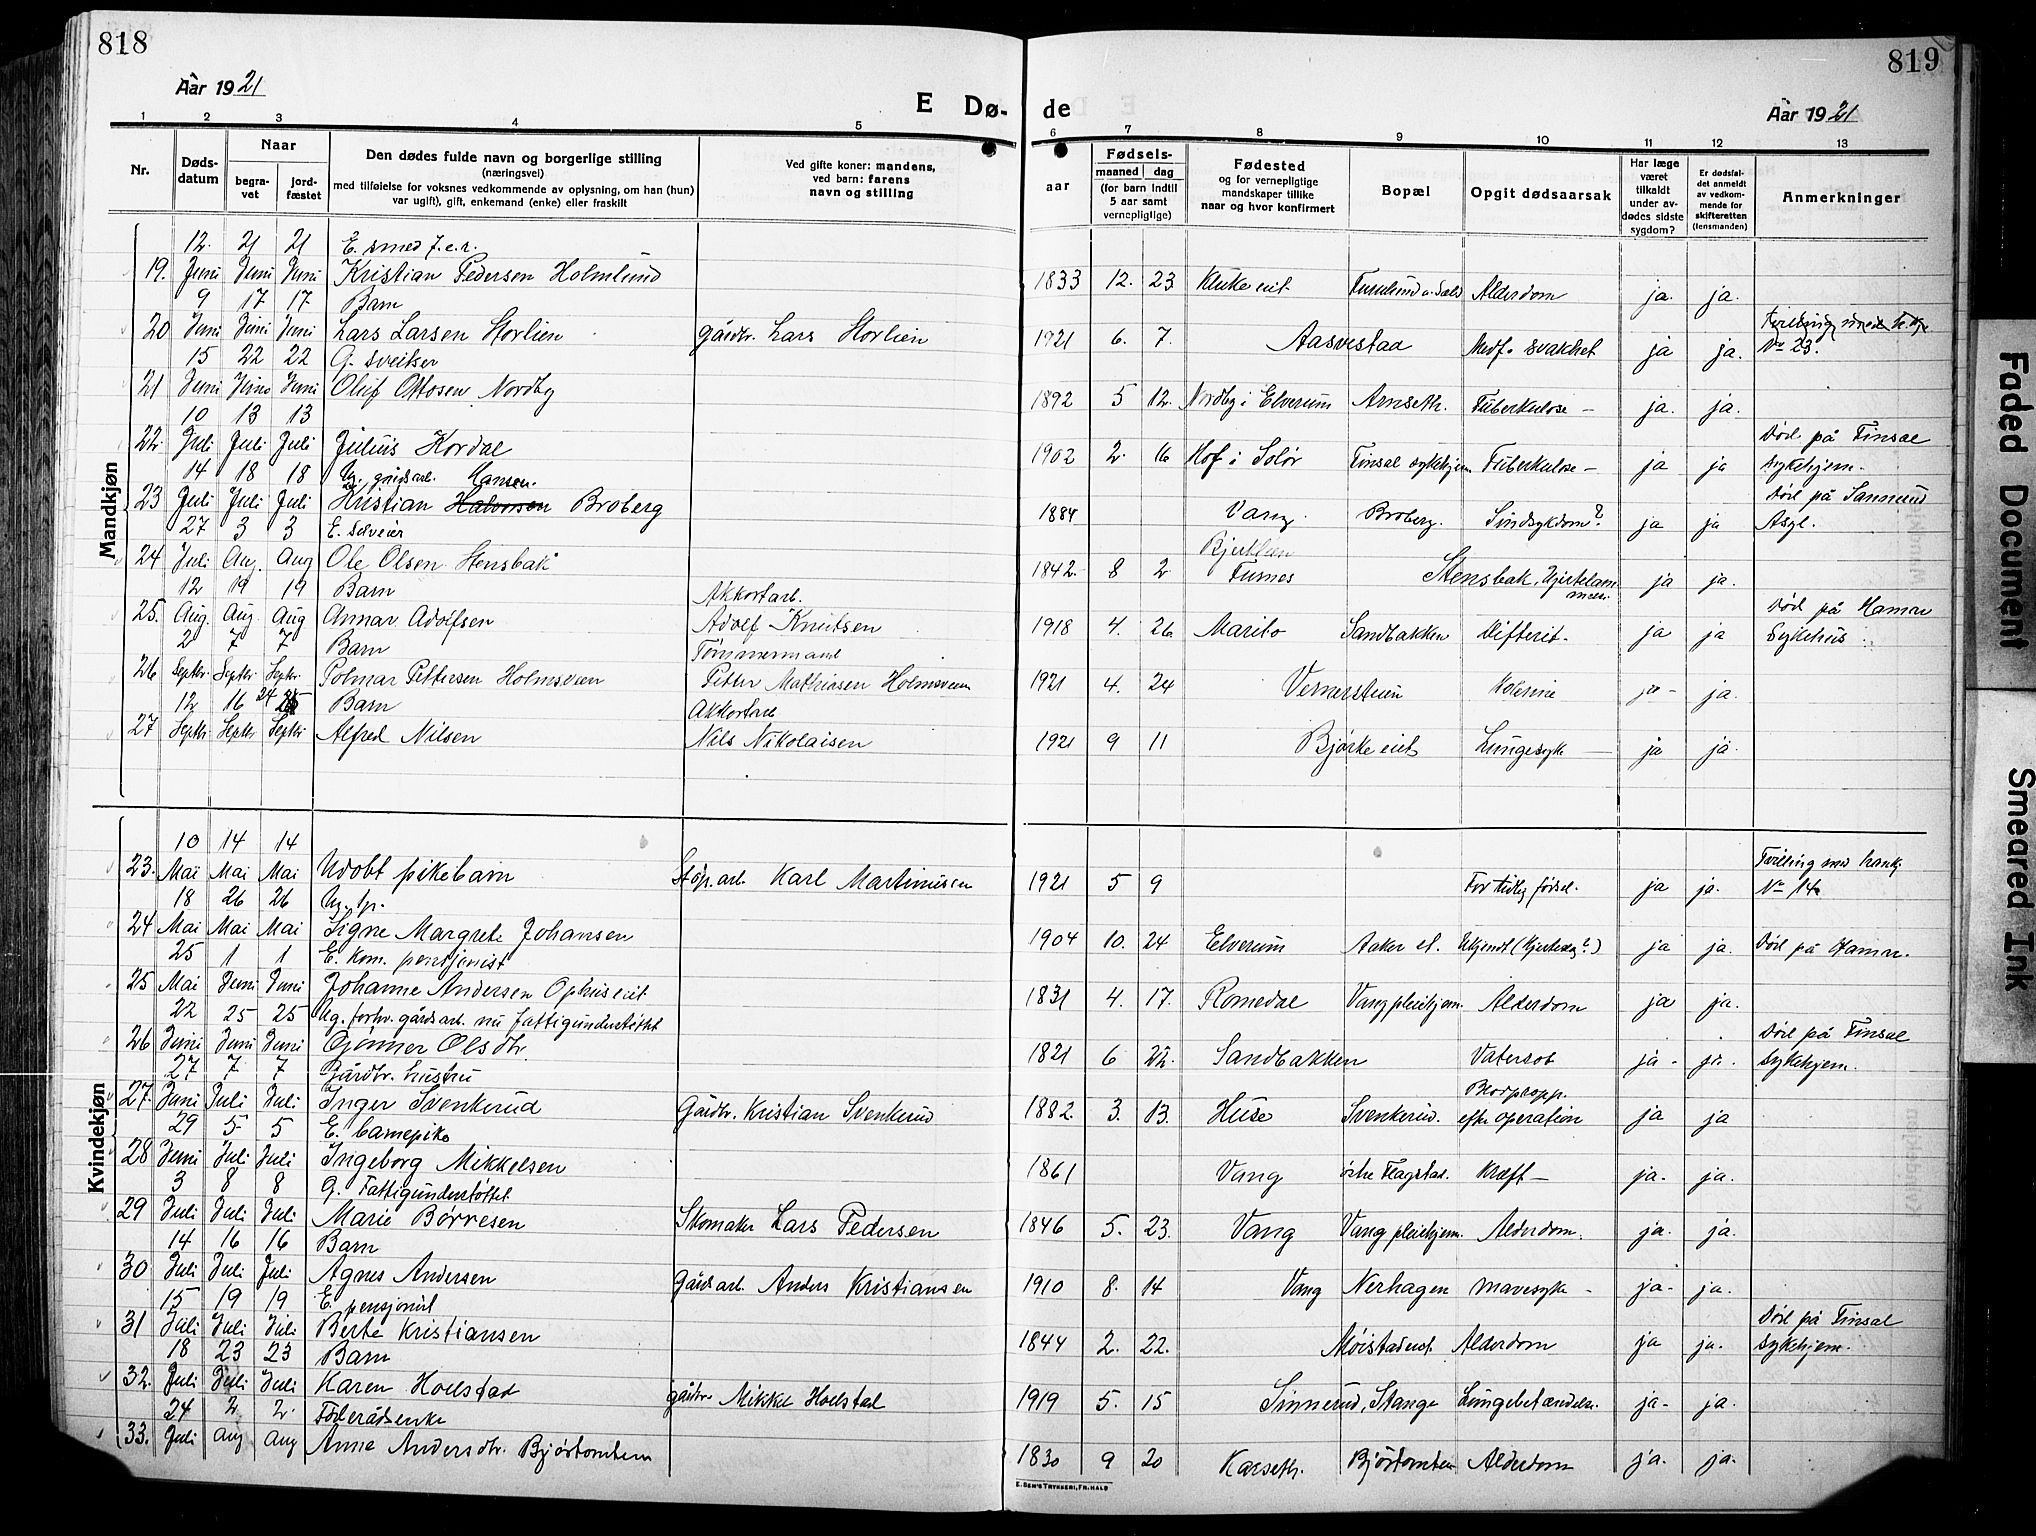 818
819
Aar 1921
E Dø-
de
Aar 1921
1 2 3 4 5 6 7 8 9 10 11 12 13
Nr.
Døds-
datum
Naar
begra-
vet
jord-
fæstet
Den dødes fulde navn og borgerlige stilling
(næringsvei)
med tilføielse for voksnes vedkommende av oplysning, om han (hun)
var ugift), gift, enkemand (enke) eller fraskilt
Ved gifte koner: mandens,
ved barn: farens
navn og stilling
aar
Fødsels-
maaned dag
(for barn indtil
5 aar samt
vernepligtige)
Fødested
og for vernepligtige
mandskaper tillike
naar og hvor konfirmert
Bopæl
Opgit dødsaarsak
Har læge
været
tilkaldt
under av-
dødes sidste
sygdom?
Er dødsfal-
det anmeldt
av vedkom-
mende for
skifteretten
(lensmanden)
Anmerkninger
Mandkjøn
12. 21 21 E. smed f.e.r.
19. Juni Juni Juni Kristian Pedersen Holmlund 1833 12. 23 Alderdom ja. ja.
9 17 17 Barn
20 Juni Juni Juni Lars Larsen Storlien gårdbr. Lars Storlien 1921 6. 7. Aasvestad Medf. svakhet ja ja. No 23.
15 22 22 G. sveitser
21 Juni Juni Juni Oluf Ottosen Nordby 1892 5 12. Nordby i Elverum Arnseth. Tuberkulose – ja. ja.
10 13 13
22. Juli Juli Juli Julius Kordal 1902 2. 16 Hof i Solør Finsal sykehjem Tuberkulose – ja ja Død på Finsal
sykehjem.
14 18 18 Ug. gårdsarb. Hansen.
23 Juli Juli Juli Kristian Halvorsen Broberg 1884 Vang. Broberg. Sindsykdom? ja ja Død på Sannerud
Asyl.
27 3 3 E. selveier
24 Juli Aug. Aug Ole Olsen Stensbak 1842. 8 2 Furnes Stensbak, ja ja.
12 19 19 Barn Akkortarb.
25. Aug. Aug Aug Annar Adolfsen Adolf Knutsen 1918 4. 26 Marilo Sandbakken Difterit. ja ja Død på Hamar
Sykehus.
2 7 7 Barn Tømmermand
26 Septbr. Septbr Septbr Polmar Pettersen Holmsveen Petter Mathiasen Holmsveen 1921 4. 24 Kolerine ja – ja.
12 16 24 25 Barn Akkortarb
27 Septbr Septbr Septbr Alfred Nilsen Nils Nikolaisen 1921 9 11 Bjørke eiet Lungesyk – ja ja.
Kvindekjøn
10 14 14
23. Mai Mai Mai Udøbt pikebarn Støp.arb. Karl Martinusen 1921 5 9 For tidlig fødsel. ja ja. Tvilling med hankj.
No 14.
18 26 26 Ug. tp.
24 Mai Mai Mai Signe Margrete Johansen 1904 10. 24 Elverum Aaker et. Ukjendt ja ja. Død på Hamar.
25 1 1 E. kom. pensjonist
25 Mai Juni Juni Johanne Andersen Ophuseiet 1831 4. 17. Romedal Vang pleiehjem. Alderdom ja ja.
22 25 25 Ug. forhv. gårdsarb. nu fattigunderstøttet
26 Juni Juni Juni Gjønner Olsdtr. 1821 6 22. Sandbakken Vatersot ja – ja. Død på Finsal
sykehjem.
27 7 7 Gårdbr. hustru
27. Juni Juli Juli Inger Svenkerud Gårdbr. Kristian Svenkerud 1882 3. 13. Huse Svenkerud. Blodpropp.
efter operation ja ja
29 5 5 E. barnepike
28 Juni Juli Juli Ingeborg Mikkelsen 1861 Vang østre Flagstad. Kræft – ja. ja.
3 8 8 G. Fattigunderstøttet
29 Juli Juli Juli Marie Børresen Skomaker Lars Pedersen 1846 5. 23. Vang Vang pleiehjem. Alderdom. ja. ja.
14 16 16 Barn
30 Juli Juli Juli Agnes Andersen Gårdsarb. Anders Kristiansen 1910 8. 14 Vang Nerhagen mavesyke – ja – ja.
15 19 19 E. pensjonist
31 Juli Juli Juli Berte Kristiansen 1844 2. 22. Møistadeiet Alderdom ja ja. Død på Finsal
sykehjem.
18 23 23 Barn
32. Juli Juli Juli Karen Hoelstad gårdbr Mikkel Hoelstad 1919 5. 15 Sinnerud, Stange Lungebetændelse. ja – ja.
24 2 2. Føderådsenke
33. Juli Aug Aug Anne Andersdtr. Bjørtomten 1830 9 20 Karseth. Bjørtomten Alderdom ja. ja.
E. SEM'S TRYKKERI, FR.HALD
Faded Document
Smeared Ink